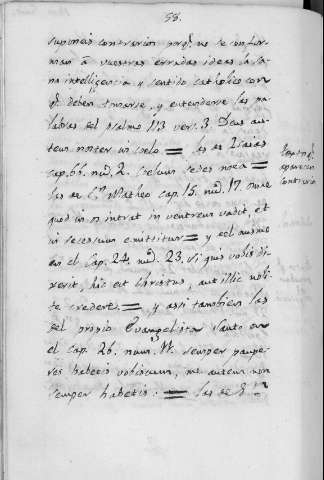 55.
suponeis contrarios porq. no se confor-
man â vuestras erradas ideas la sa-
na intelligencia y sentido catholico con
q. deben tomarse, y entenderse las pa-
labras del psalmo 113 vers. 3. Deus au-
tem noster in celo = las de Isaias
cap. 66. nu. 2. Coelum sedes mea =
las de Sn Matheo cap. 15. nu. 17. omne
quod in os intrat in ventrem vadit, et
in secessum emittitur = y el mismo
en el Cap. 24. nu. 23. si quis vobis di-
xerit, hic est Christus, aut illic noli-
te credere. = y assi tambien las
del propio Evangelista Santo en
el cap. 26. num. 11. semper paupe-
res habetis vobiscum, me autem non
semper habetis. = las de S.
q.
aparecen
contrarios